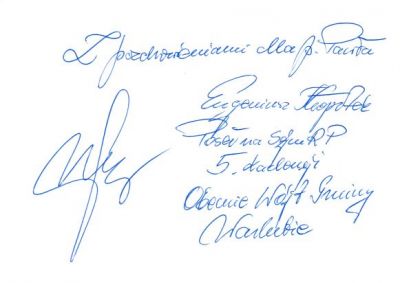 Z pozdrowieniami dla p. Pawła
Eugeniusz Kłopotek
Poseł na Sejm RP
5. kadencji
Obecnie Wójt Gminy
Warlubie